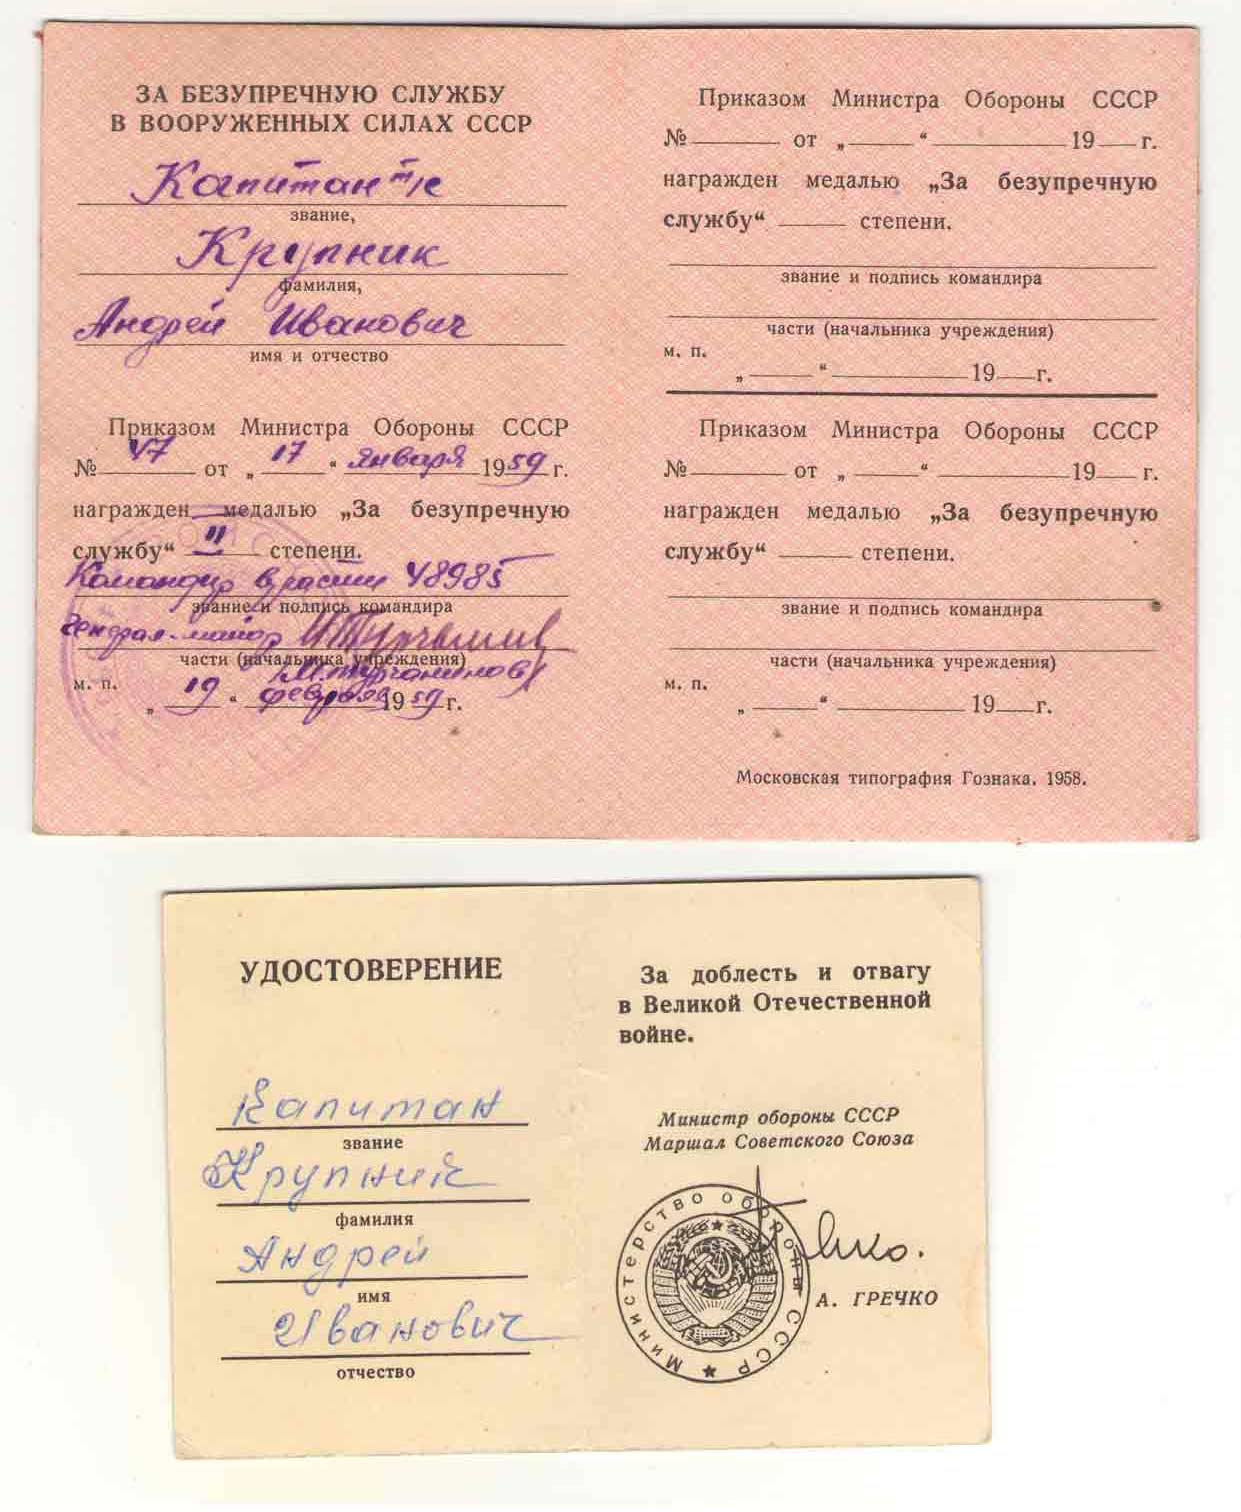 ЗА БЕЗУПРЕЧНУЮ СЛУЖБУ
В ВООРУЖЕННЫХ СИЛАХ СССР
Капитан т/к
звание,
Крупник
фамилия,
Андрей Иванович
имя и отчество
Приказом Министра Обороны СССР
№ 47 от „17“ января 1959 г.
награжден медалью „За безупречную
службу“ II степени.
Командир в/части 48985
звание и подпись командира
Генерал-майор
части (начальника учреждения)
м. п.
„19“ февраля 1959 г.
Приказом Министра Обороны СССР
№ от „ “ 19 г.
награжден медалью „За безупречную
службу“ степени.
звание и подпись командира
части (начальника учреждения)
м. п.
„ “ 19 г.
Приказом Министра Обороны СССР
№ от „ “ 19 г.
награжден медалью „За безупречную
службу“ степени.
звание и подпись командира
части (начальника учреждения)
м. п.
„ “ 19 г.
Московская типография Гознака. 1958.
УДОСТОВЕРЕНИЕ
Капитан
звание
Крупник
фамилия
Андрей
имя
Иванович
отчество
За доблесть и отвагу
в Великой Отечественной
войне.
Министр обороны СССР
Маршал Советского Союза
Министерство обороны СССР
А. ГРЕЧКО